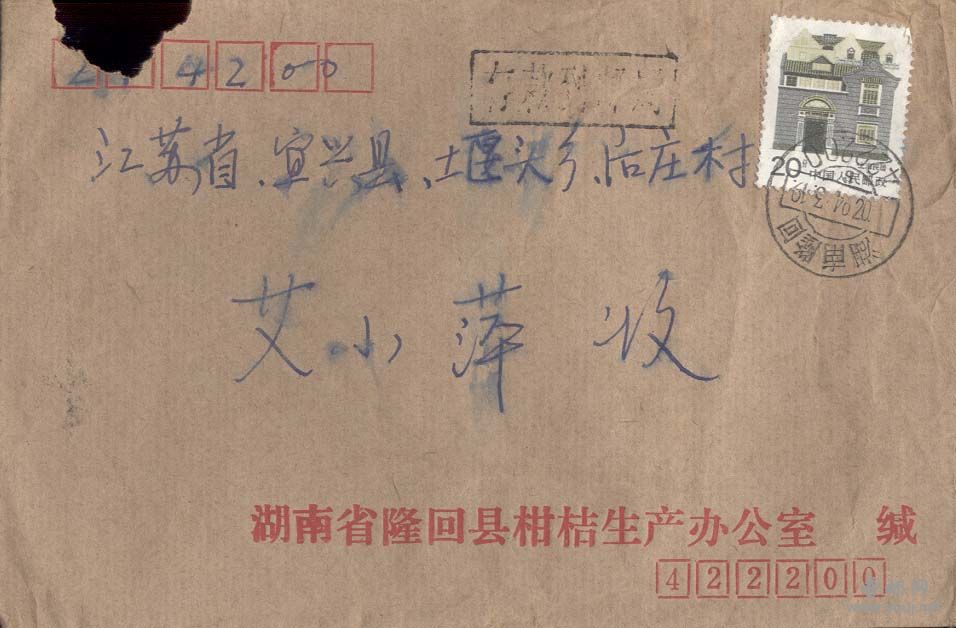 214200
江苏省、宜兴县、堰头乡、后庄村
艾小萍 收
20分
中国人民邮政
湖南隆回
湖南省隆回县柑桔生产办公室 缄
422200